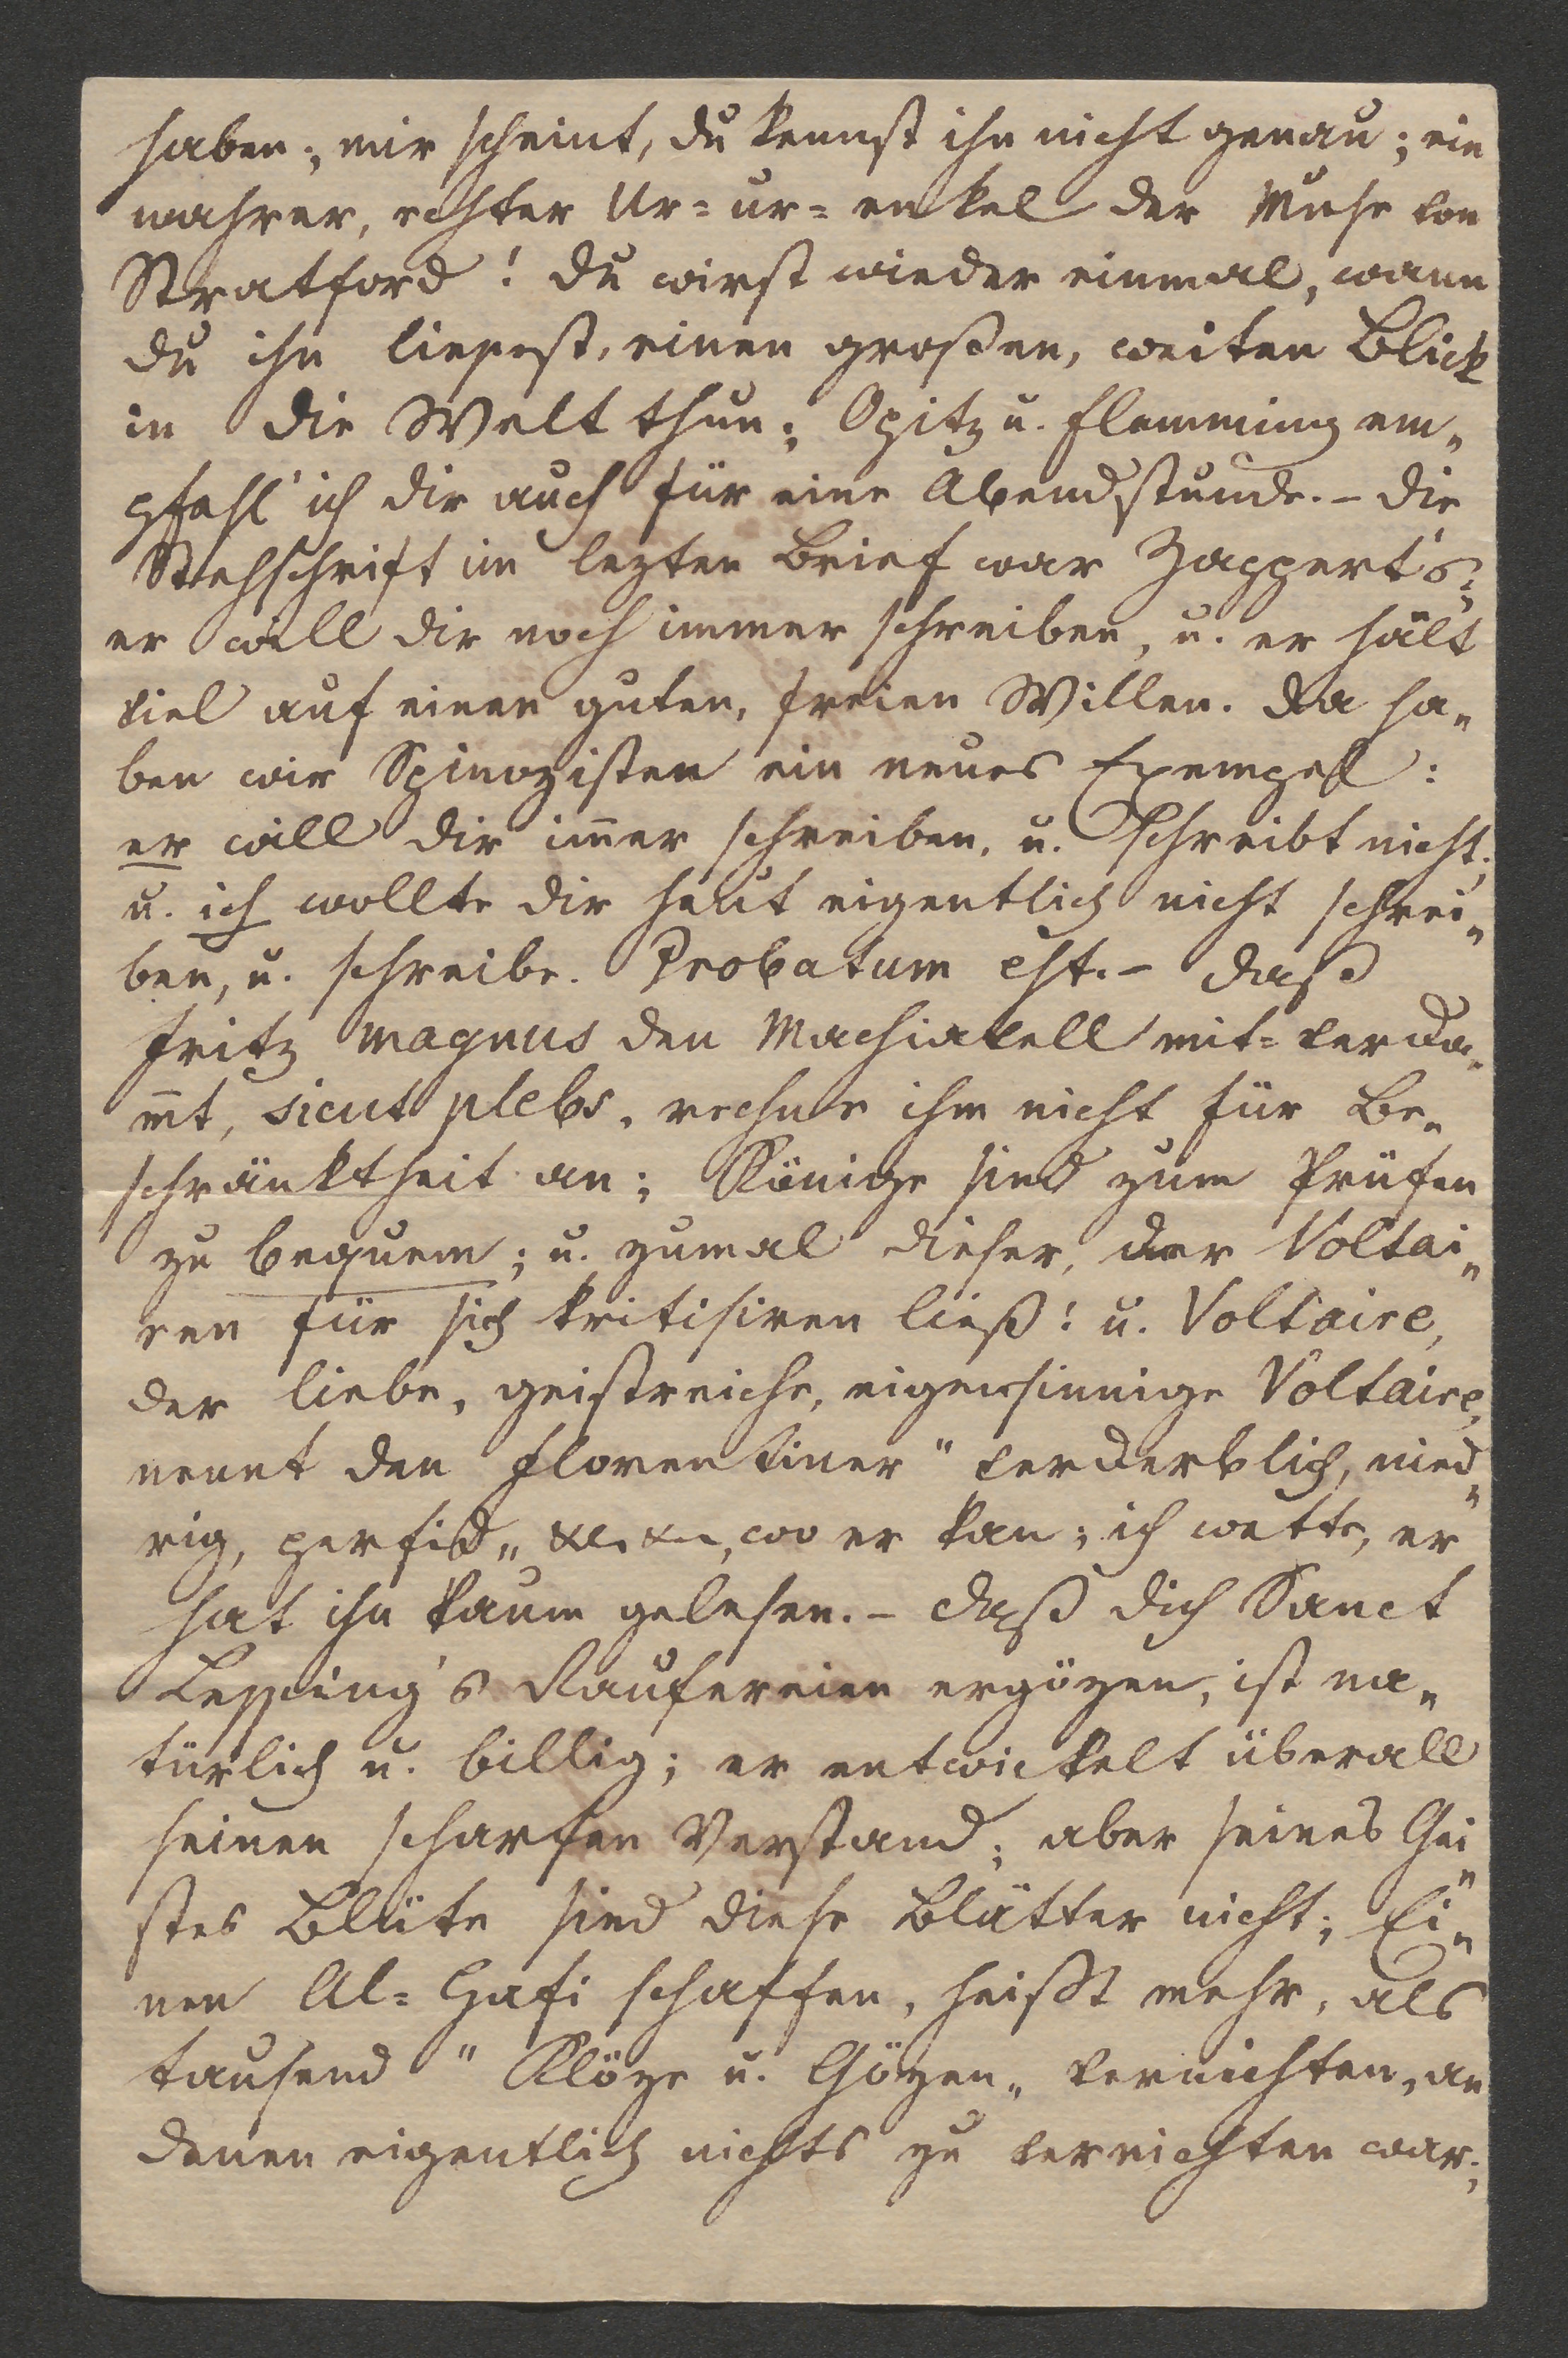 haben; mir scheint, du kennst ihn nicht genau; ein
wahrer, echter Ur=ur=enkel der Muse von
Stratford! du wirst wieder einmal, wann
du ihn liesest, einen großen, weiten Blick
in die Welt thun; Opitz u. Flemming em„
pfehl' ich dir auch für eine Abendstunde. – Die
Stehschrift im lezten Brief war Zappert's;
er will dir noch immer schreiben, u. er hält
viel auf einen guten, freien Willen. Da ha„
ben wir Spinozisten ein neues Exempel:
er will dir im̅er schreiben, u. schreibt nicht;
u. ich wollte dir heut eigentlich nicht schrei„
ben, u. schreibe. Probatum est. – Daß
Fritz magnus den Machiavell mit=verda„
m̅t, sicut plebs, rechne ihm nicht für Be„
schränktheit an; Könige sind zum Prüfen
zu bequem; u. zumal dieser, der Voltai„
ren für sich kritisiren ließ! u. Voltaire,
der liebe, geistreiche, eigensinnige Voltaire,
nennt den Florentiner "verderblich, nied„
rig, perfid„ &c. &c., wo er kan; ich wette, er
hat ihn kaum gelesen. – Daß dich Sanct
Lessing's Raufereien ergözen, ist na„
türlich u. billig; er entwickelt überall
seinen scharfen Verstand; aber seines Gei„
stes Blüte sind diese Blätter nicht; Ei„
nen Al=Hafi schaffen, heißt mehr, als
tausend "Klöze u. Gözen„ vernichten, an
denen eigentlich nichts zu vernichten war;